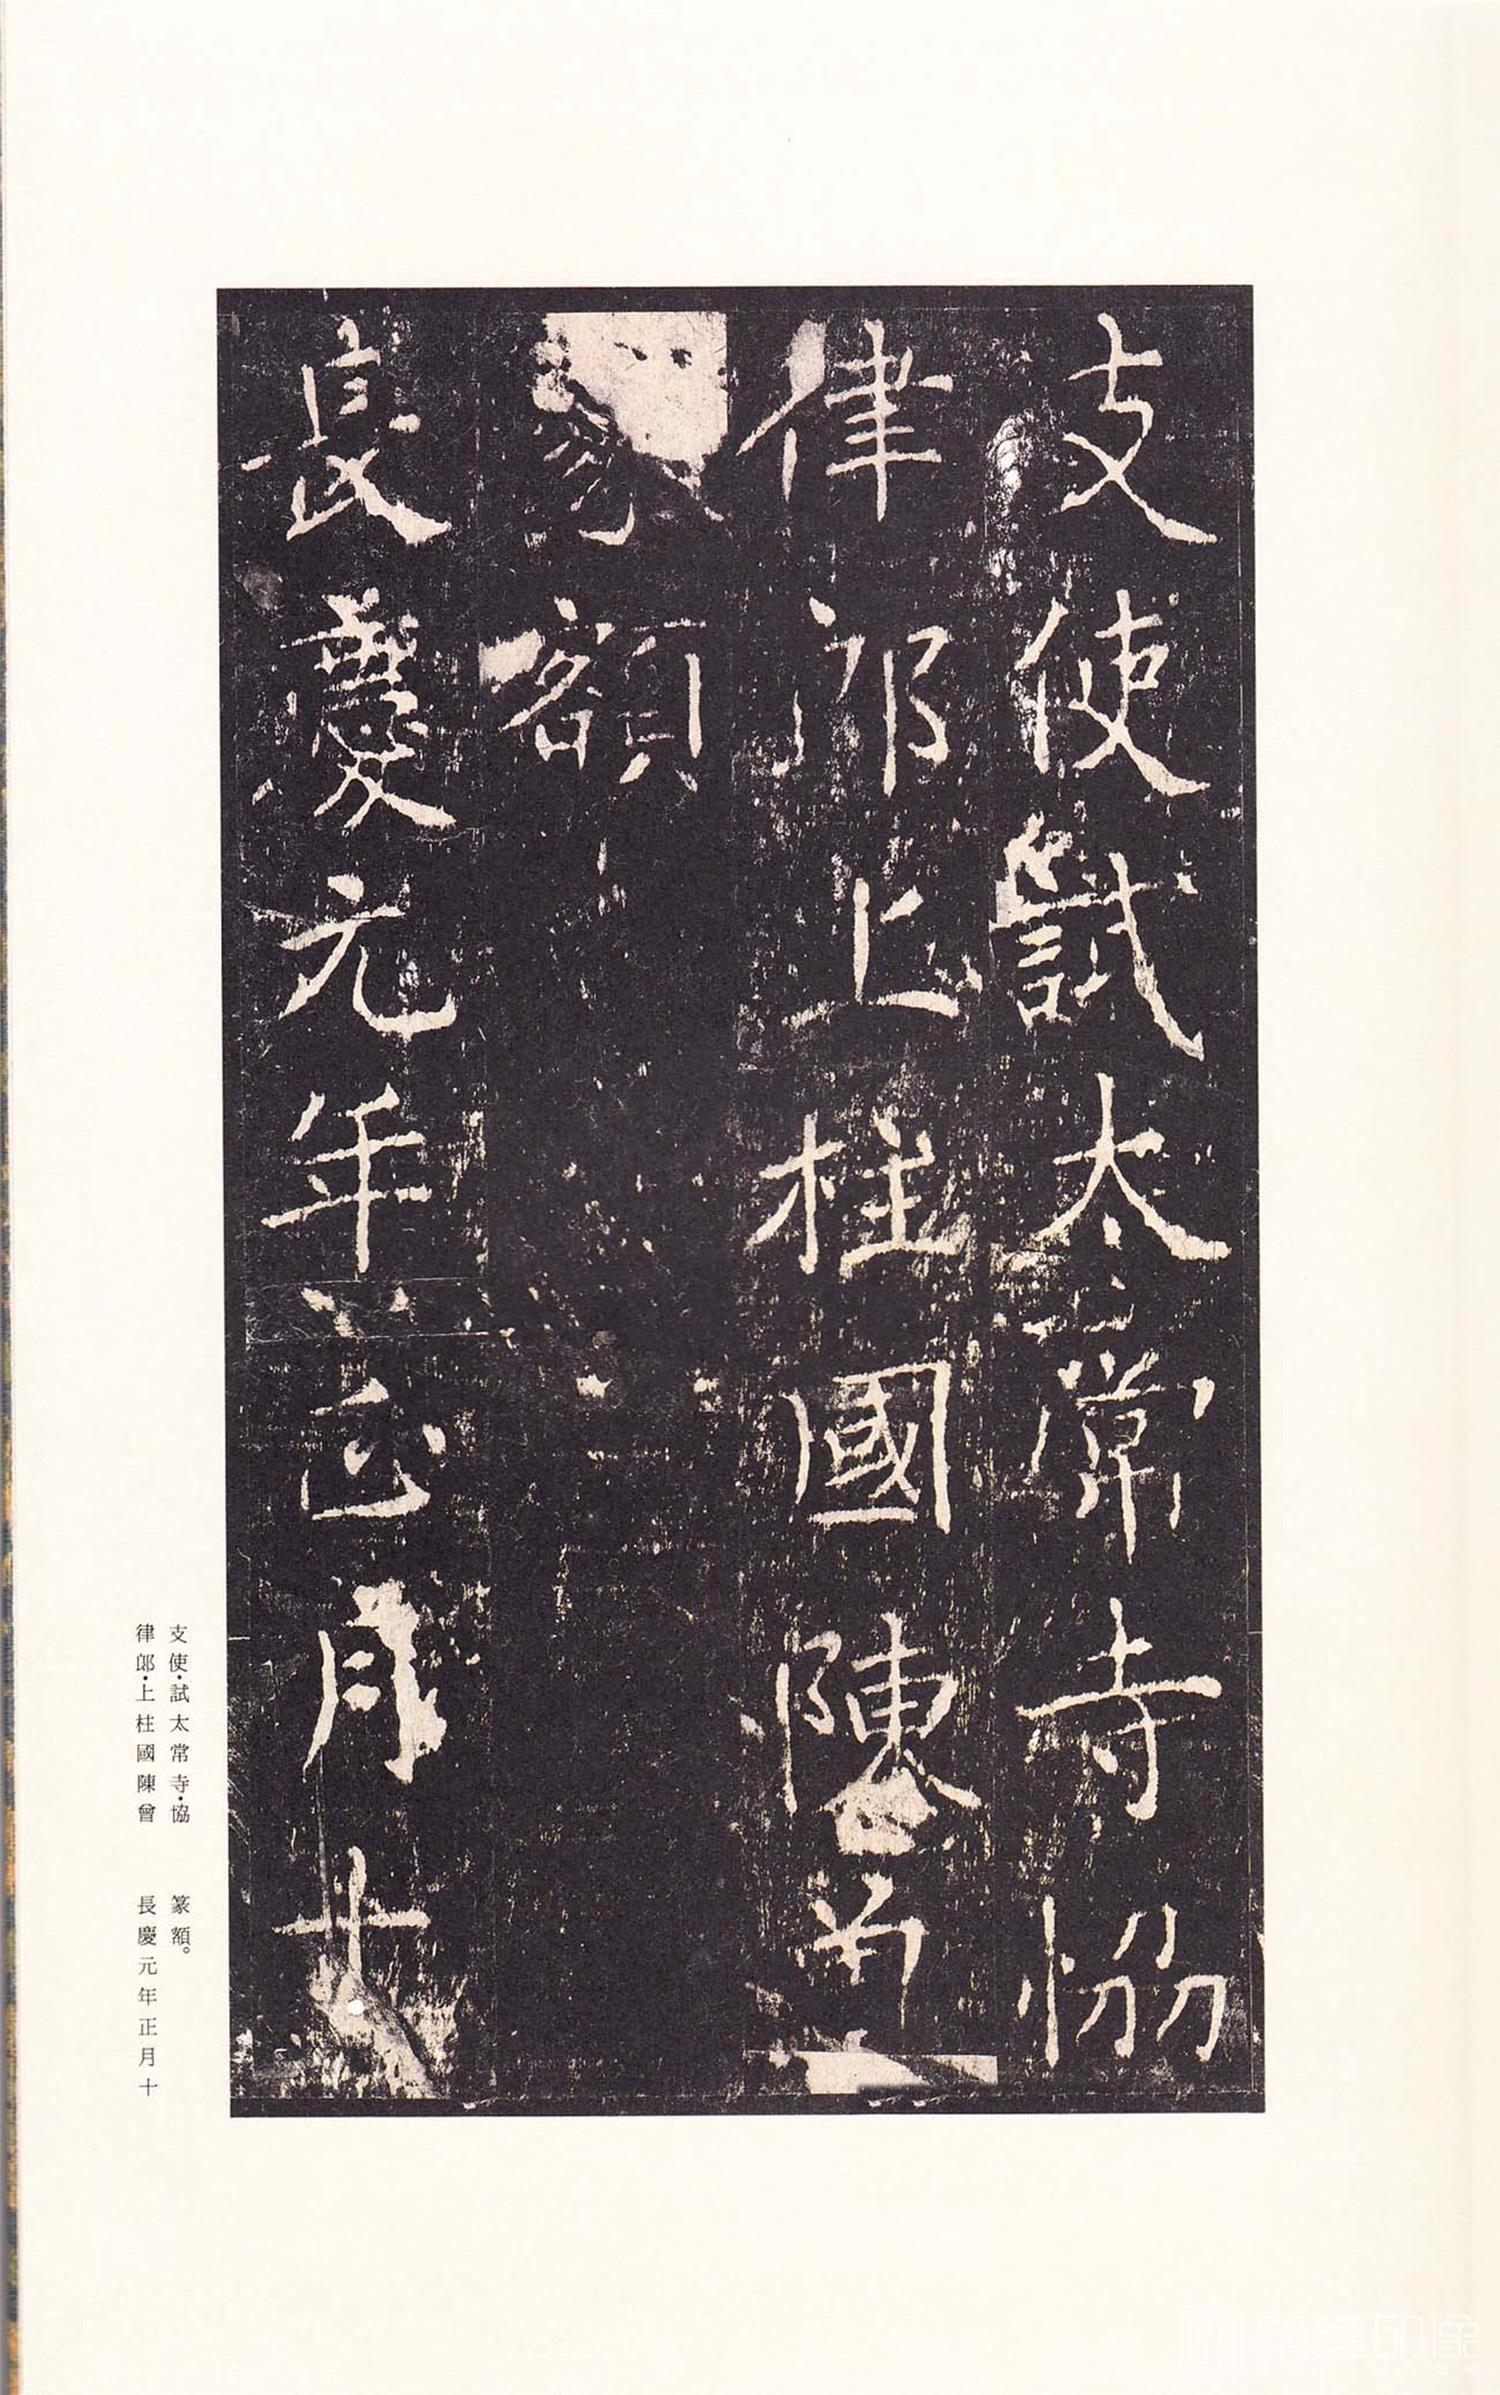 支使試太常寺協
律郎上柱國陳曾
篆額
長慶元年正月十
支使·試太常寺·協
律郎·上柱國陳曾
篆額。
長慶元年正月十